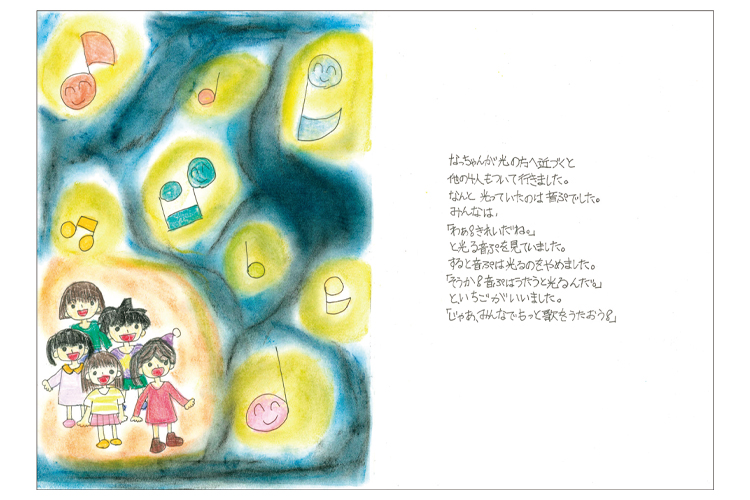 なっちゃんが光の方へ近づくと
他の4人もついて行きました。
なんと光っていたのは音ぷでした。
みんなは、
「わぁ!きれいだね。」
と光る音ぷを見ていました。
すると音ぷは光るのをやめました。
「そうか!音ぷはうたうと光るんだ!」
と、いちごがいいました。
「じゃあ、みんなでもっと歌をうたおう!」